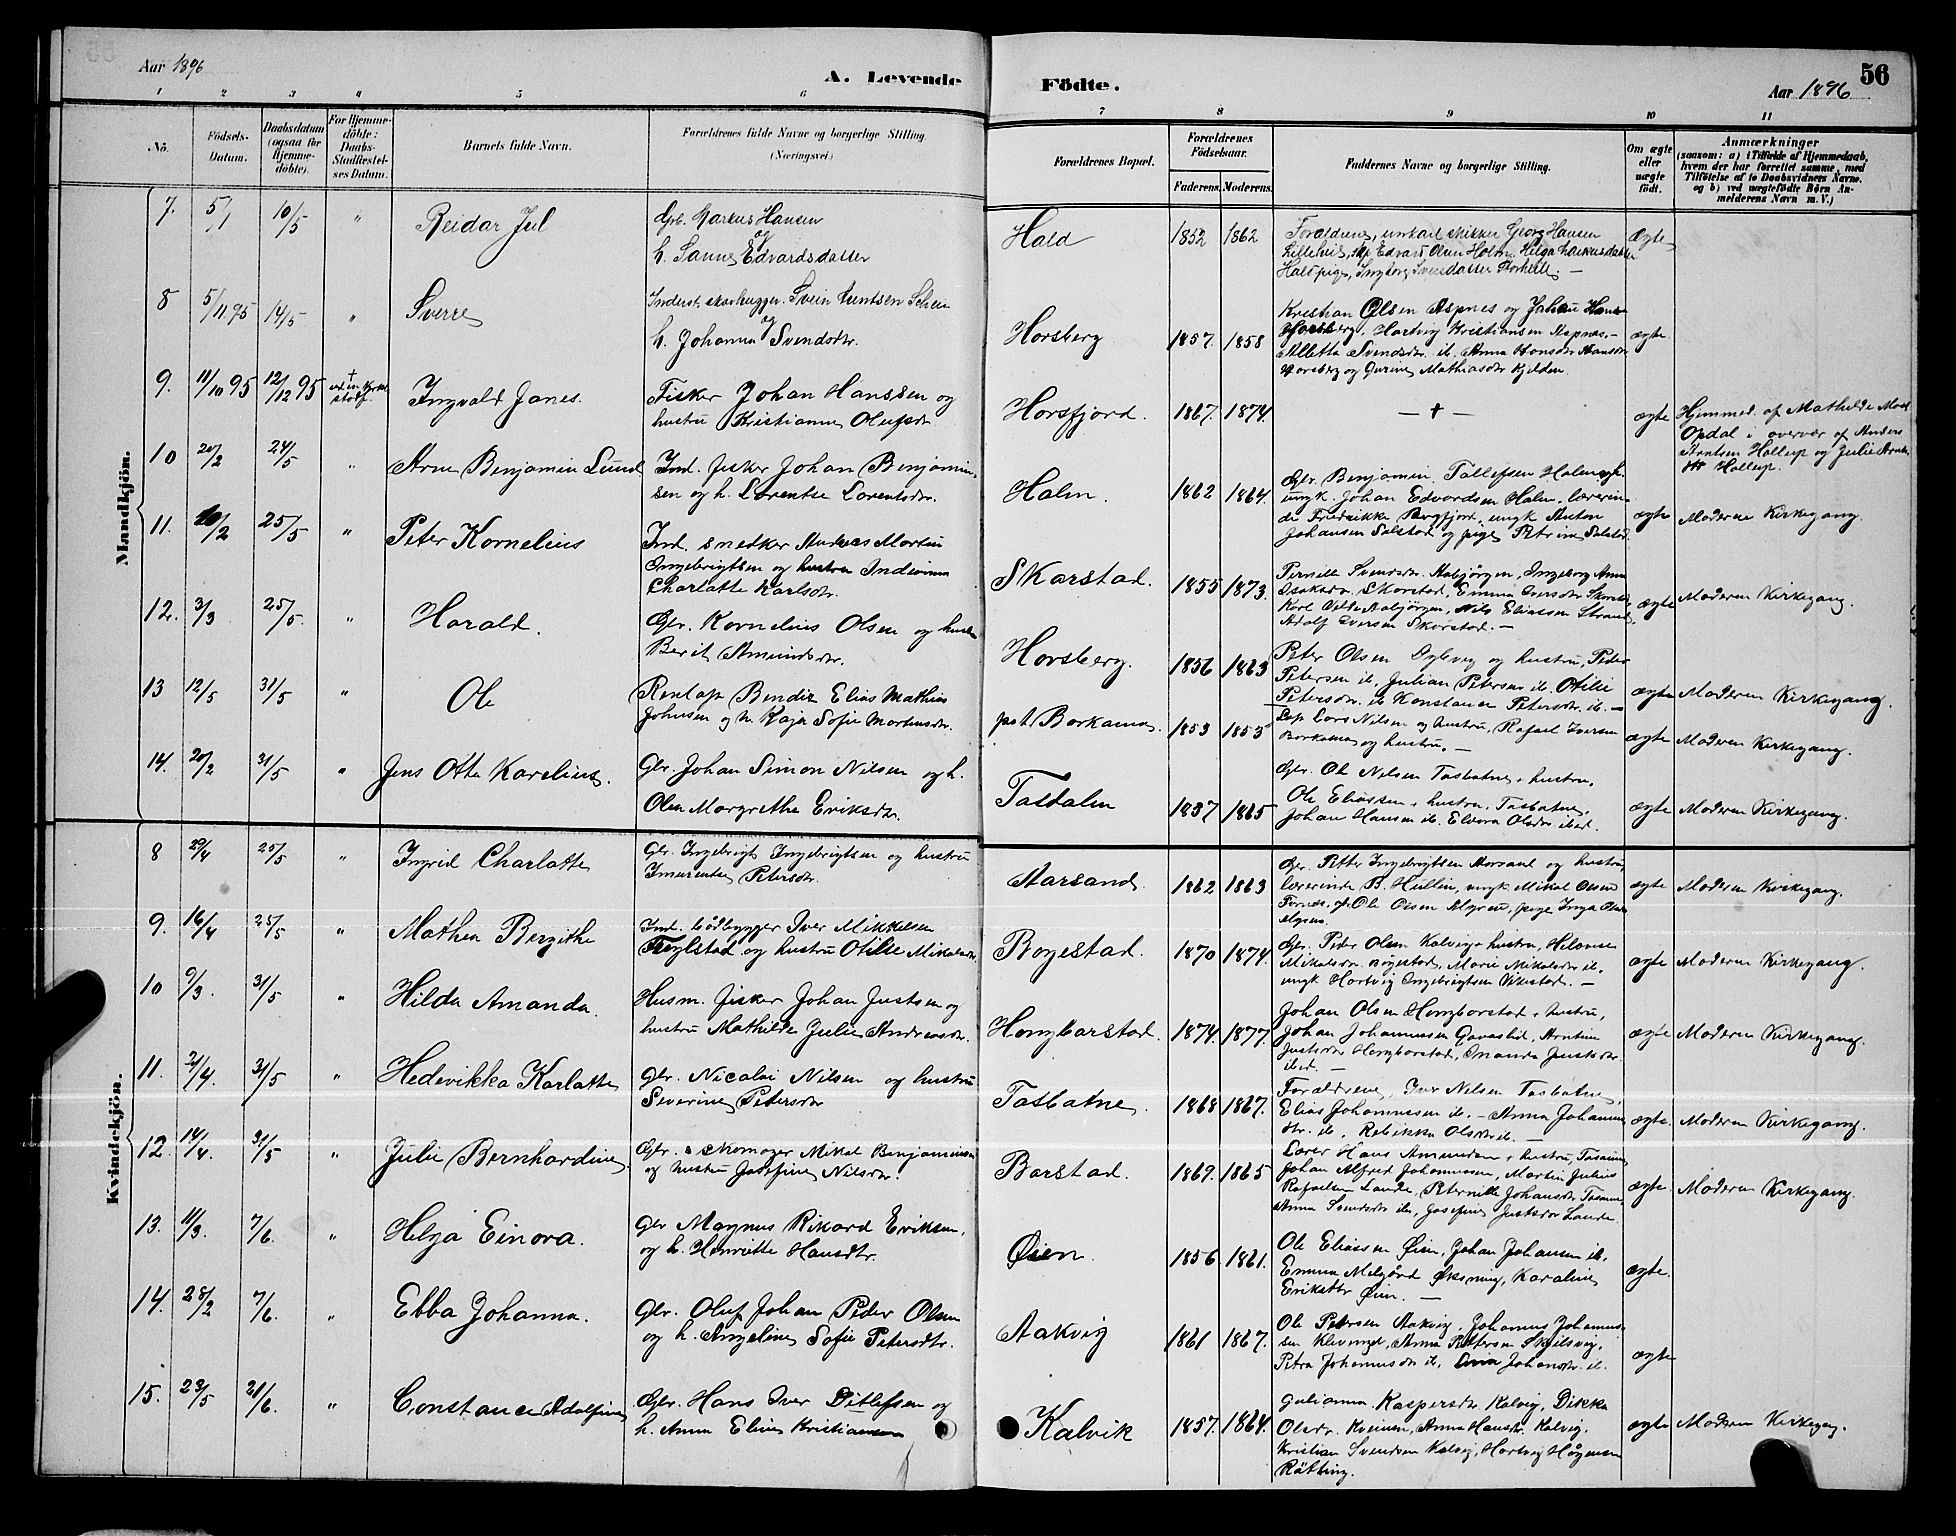 Aar 1896
A. Levende Födte.
Aar 1896
56
1 2 3 " 5 6 7 8 9 10 11
No.
Födsels-Datum.
Daabsdatum (ogsaa for Hjemmedöbte).
For Hjemmedöbte: Daabs-Stadfæstelses Datum.
Barnets fulde Navn.
Forældrenes fulde Navne og borgerlige Stilling. (Næringsvei.)
Forældrenes Bopæl.
Forældrenes Födselsaar.
Faderens. Moderens.
Faddernes Navne og borgerlige Stilling.
Om ægte eller uægte födt.
Anmærkninger (saasom: a) i Tilfælde af Hjemmedaab, hvem der har forrettet samme, med Tilföielse af to Daabsvidners Navne, og b) ved uægtefödte Börn Anmelderens Navn m. V.)
Mandkjön.
7. 5/1 10/5 " Reidar Jul
Gbr. Markus Hansen
og
h. Sanna Edvardsdatter
Hald 1852 1862
Forældrene, Georg Hansen
Edvard Olsen Holm, Helga Markusdatter
Ingborg Svendsdatter
Ægte
8 5/11 95 14/5 " Sverre
Inderst, skorhugger Svein
og
h. Johanna Svendsdtr.
Horsberg 1857. 1858
Kristian Olsen Aspnes og Johan Hansen
Horsberg, Hartvig Kristiansen Aspnæs. -
Alletta Svendsdr. ib. Anna Hansdtr
Horsberg og Gurine Mathiasdr Kjelden.
ægte
9. 11/10 95 12/12 95 + Ingvald Janes.
Fisker Johan Hanssen og
hustru Kristianna Olufsdr
Horsfjord. 1867. 1874.
- + -
ægte
Hjemmed. af Mathilde
Opdal i overvær af Anders
Arntsen Hollup og Julie Arnts-
dtr Hollup.
10 20/2 24/5 " Arne Benjamin Lund
Ind. fisker Johan Benjamin-
sen og h. Lorentse Lorentsdr.
Holm. 1862 1864.
Gbr. Benjamin Tollefsen Holm
ungk. Johan Edvardsen Holm, lærerin-
de Fredrikke Bergfjord, ungk Anton
Johansen Solstad og pige Petrine Solstad.
ægte Moderen Kirkegang.
11. 10/2 25/5 " Peter Kornelius
Ind. snedker Andreas Martin
Ingebrigtsen og hustru Indianna
Charlotte Karlsdr.
Skarstad. 1855 1873.
Pernille Svendsdr. Aabjörgen, Ingeborg Anna
Isaksdr. Skarstad, Emma Iversdr Skarstad,
Karl Aabjörgen, Nils Eliassen Strand,
Adolf Iversen Skarstad. -
ægte Moderen Kirkegang.
12. 3/3 25/5 " Harald.
Gbr. Kornelius Olsen og hustru
Berit Amundsdr.
Horsberg. 1856 1863
Peter Olsen og hustru, Peder
Petersen ib, Julian Petersen ib. Otilie
Petersdr. ib Konstance Petersdr. ib. -
ægte Moderen Kirkegang.
13 12/5 31/5 " Ole
Bendix Elias Mathias
Johnsen og h. Kaja Sofie Mortensdr.
Borkamo. 1853 1855
Lars Nilsen og hustru, Rafael Iversen
Borkamo og hustru. -
ægte Moderen Kirkegang.
14. 20/2 31/5 " Jens Otto Karelius.
Gbr. Johan Simon Nilsen og h.
Olea Margrethe Eriksdr.
Tosdalen 1837 1865
Gbr. Ole Nilsen Tosbotne + hustru,
Ole Eliassen + hustru, Tosbotne,
Johan Hansen ib. Elvera Olsdr ibid.
ægte Moderen Kirkegang.
Kvindekjön.
8 29/4 25/5 " Ingrid Charlotte
Gbr. Ingebrigt Ingebrigtsen og hustru
Imerentse Petersdr.
Aarsand. 1862 1863
Gbr. Petter Ingebrigtsen Aarsand og hustru,
lærerinde B. Hullin, ungk Mikal Olsen
Ole Olsen pige Inga Olsdr
ægte Moderen Kirkegang.
9. 16/4 25/5 " Mathea Bergithe
Ind. bådbygger Iver Mikkelsen
og hustru Otilie Mikalsdr.
Bogestad. 1870 1874.
Gbr. Peder Olsen Kalvig + hustru,
Mikalsdr. Bogestad, Marie Mikalsdr ib,
ungk Hartvig Ingebrigtsen Vikestad. -
ægte Moderen Kirkegang.
10 9/3 31/5 " Hilda Amanda.
Husm. fisker Johan Justsen og
hustru Mathilde Julie Andreasdr.
Hongbarstad. 1874. 1877.
Johan Olsen Hongborstad + hustru,
Johan Johannessen Arntine
Justsdr Hongborstad, Justsdr
ibid. -
ægte Moderen Kirkegang.
11. 21/4. 31/5 " Hedevikka Karlotte
Gbr. Nicolai Nilsen og hustru
Severine Petersdr
Tosbotne. 1868 1867.
Forældrene, Iver Nilsen Tosbotne,
Elias Johannessen ib. - Anna Johannes-
dtr. ib, Rebikka Olsdtr ib. -
ægte. Moderen Kirkegang.
12. 14/4. 31/5 " Julie Bernhardine
Gbr. & skomager Mikal Benjaminsen
og hustru Josefine Nilsdr.
Barstad. 1869. 1865
Lærer Hans Amundsen + hustru,
Johan Alfred Johannessen, Martin Julius
Rafaelsen Lande, Peternille Johansdr
Anna Svendsdr ib, Josefine Justsdr Lande.
ægte. Moderen Kirkegang.
13. 11/3. 7/6. " Helga Einora.
Gbr Magnus Rikard Eriksen,
og h. Henriette Hansdtr.
Øien. 1856 1861.
Ole Eliassen Øien, Johan Johansen ib,
Emma Øksning, Karoline
Eriksdtr Øien. -
ægte.
14. 28/2 7/6. " Ebba Johanna.
Gbr. Oluf Johan Peder Olsen
og h. Angeline Sofie Petersdtr.
Aakvig 1861 1867.
Ole Petersen Aakvig, Johannes Johannes-
sen Anna Pettersen Skjelsvig,
Petra Johannesdr ib, Johansdtr. ib.
ægte
15. 23/5 21/6. " Constance Adolfine
Gbr. Hans Iver Ditlefsen og
h. Anna Eline Kristiansen
Kalvik 1857. 1864.
Julianna Kaspersdtr. Kalvig, Dikka
Olsdr. Anna Hansdtr. Kalvig,
Kristian Svendsen Kalvig, Hartvig Hågensen
Råtting.
ægte Moderen Kirkegang.